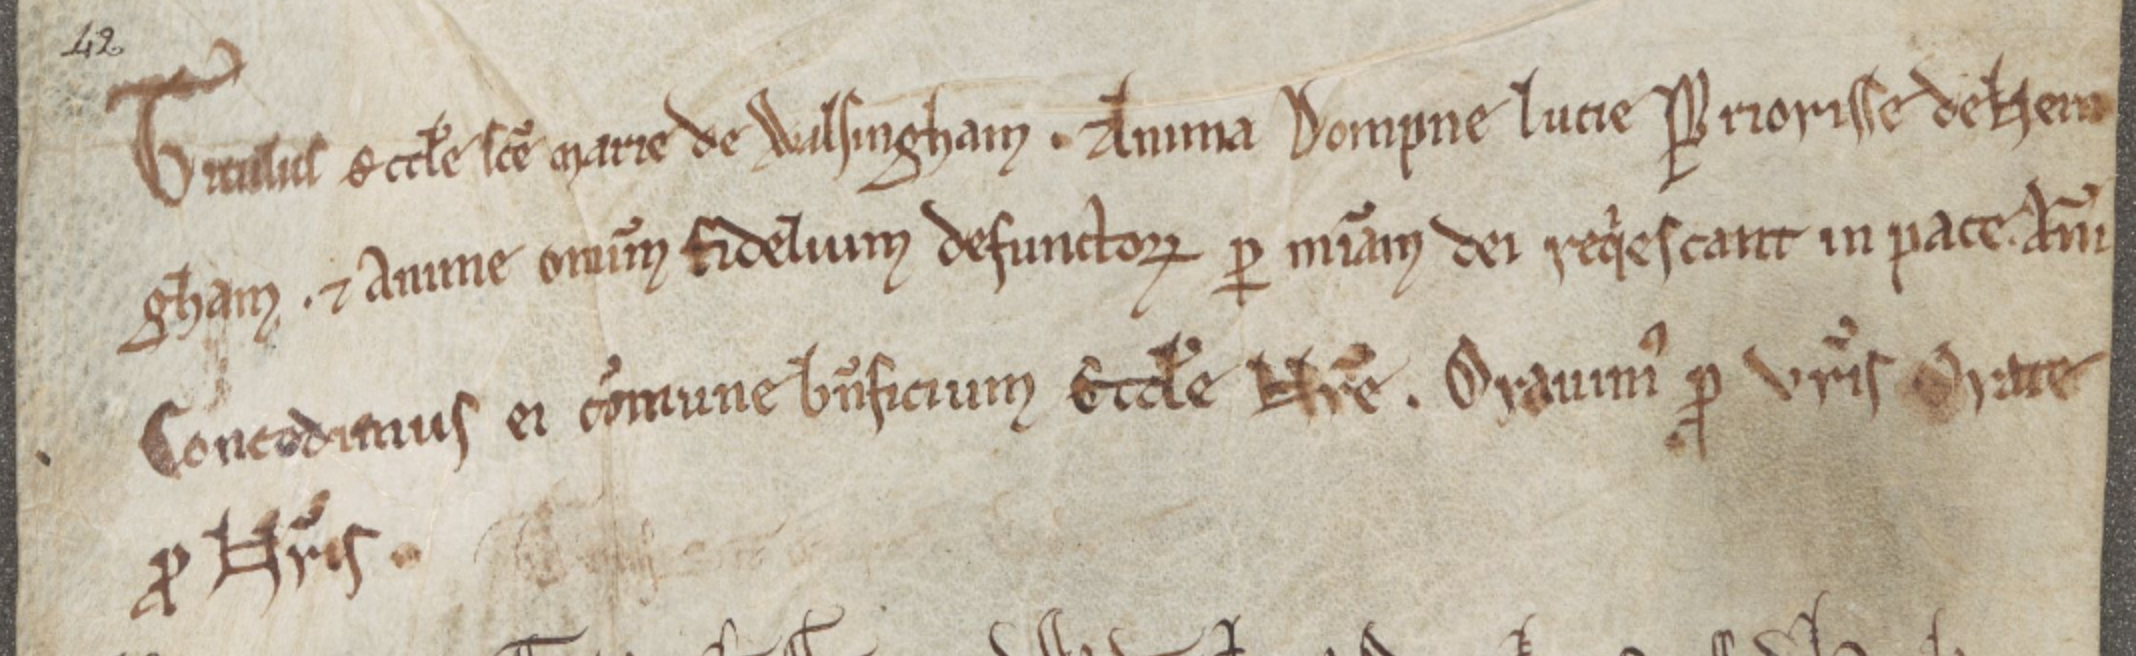 42
Titulus Eccłe sc̄e marie de Walsingham . Anima Dompne lucie Priorisse de Hein
gham . ⁊ Anime omiū̄m fidelium defunctoꝝ ꝑ miām dei reqͥescant in pace . Am̄
Concedimus ei cōmune bn̄ficium Eccłe Nr̄e . Orauimꝰ ꝓ vr̄is Orate
ꝓ Nr̄is .